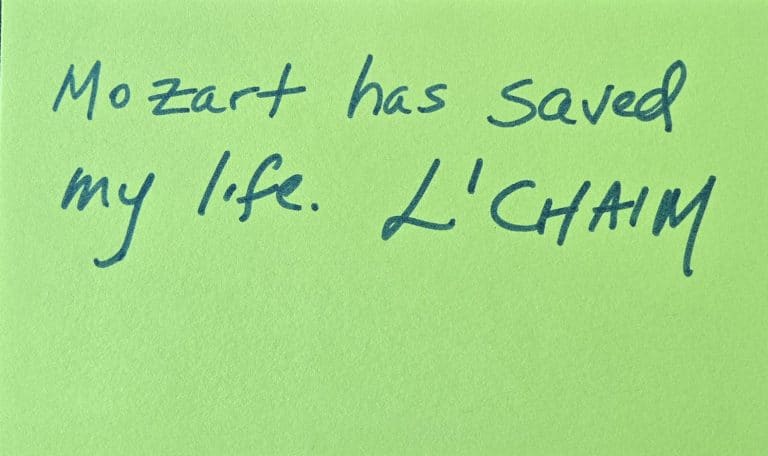 Mozart has saved
my life. L'CHAIM